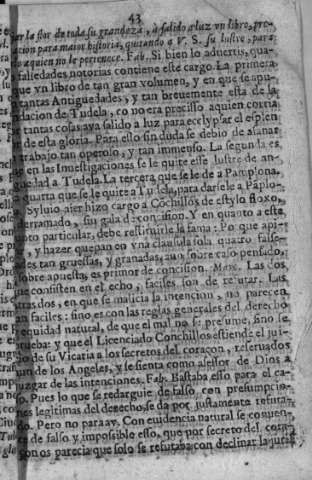 43
ar la flor de toda su grandeza, ò salido a luz vn libro, pre-
acion para maior historia, quitando a V. S. su lustre, para
o aquien no le pertenece. Fab. Si bien lo aduertis, qua-
falsedades notorias contiene este cargo. La primera,
que vn libro de tan gran volumen, y en que se apu-
tantas Antiguedades, y tan breuemente esta de la
ndacion de Tudela, co no era precisso aquien corria
r tantas cosas aya salido a luz, para ecclypsar el esplen
de esta gloria. Para esso sin duda se debio de afanar
trabajo tan operoso, y tan immenso. La segunda es
en las Inuestigaciones se le quite esse lustre de an-
guedad a Tudela. La tercera que se le de a Pamplona.
quarta que se le quite a Tudela, para darsele a Páplo-
Syluio aier hizo cargo a Cõchillos de estylo floxo,
derramado, su gala de concision. Y en quanto a esta
unto particular, debe restituirle la fama: Po que api-
y hazer quepan en vna clausula sola quatro false-
des tan gruessas, y granadas, aun sobre caso pensado,
sobre apuesta, es primor de concision. Max. Las dos,
que consisten en el echo, faciles son de refutar. Las
tras dos, en que se malicia la intencion, no parecen
an faciles: sino es con las reglas generales del derecho
equidad natural, de que el mal no se presume, sino se
rueba: y que el Licenciado Conchillos estiende el jui-
o de su Vicaria a los secretos del coraçon, reseruados
un de los Angeles, y se sienta como asessor de Dios a
juzgar de las intenciones. Fab. Bastaba esso para el ca-
o. Pues lo que se redarguie de falso, con presumpcio-
nes legitimas del derecho, se da por justamente refuta-
do. Pero no para ay. Con euidencia natural se conuen-
ce de falso y impossible esso, que por secreto del cora-
çon os parecia que solo se refutaba con declinar la juris